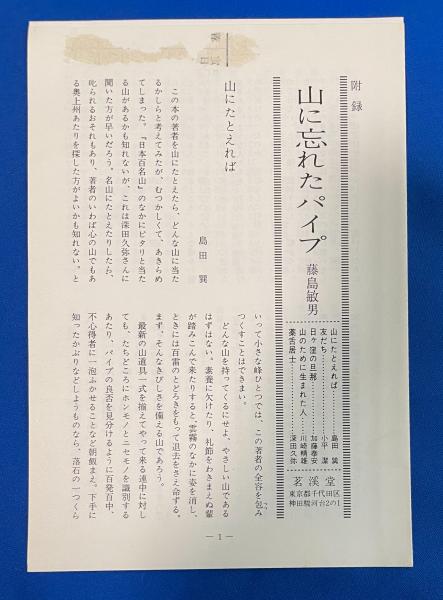 附録
山に忘れたパイプ
藤島敏男
山にたとえれば…………島田 巽
友だち…………小平 潔
日々窪の旦那…………加藤泰安
山のために生まれた人…………川崎精雄
薬舌居士…………深田久弥
茗溪堂
東京都千代田区
神田駿河台2の1
山にたとえれば
島田 巽
この本の著者を山にたとえたら、どんな山に当た
るかしらと考えてみたが、むつかしくて、あきらめ
てしまった。『日本百名山』のなかにピタリと当た
る山があるかも知れないが、これは深田久弥さんに
聞いた方が早いだろう。名山にたとえたりしたら、
叱られるおそれもあり、著者のいわば心の山でもあ
る奥上州あたりを探した方がよいかも知れない。と
いって小さな峰ひとつでは、この著者の全容を包み
つくすことはできまい。
どんな山を持ってくるにせよ、やさしい山である
はずはない。素養に欠けたり、礼節をわきまえぬ輩
が踏みこんで来たりすると、雲霧のなかに姿を消し、
ときには百雷のとどろきをもって退去をさえ命ずる。
まず、そんなきびしさを備える山であろう。
最新の山道具一式を揃えてやって来る連中に対し
ても、たちどころにホンモノとニセモノを識別する
あたり、パイプの良否を見分けるように百発百中、
不心得者に一泡ふかせることなど朝飯まえ。下手に
知ったかぶりなどしようものなら、落石の一つくら
— 1 —